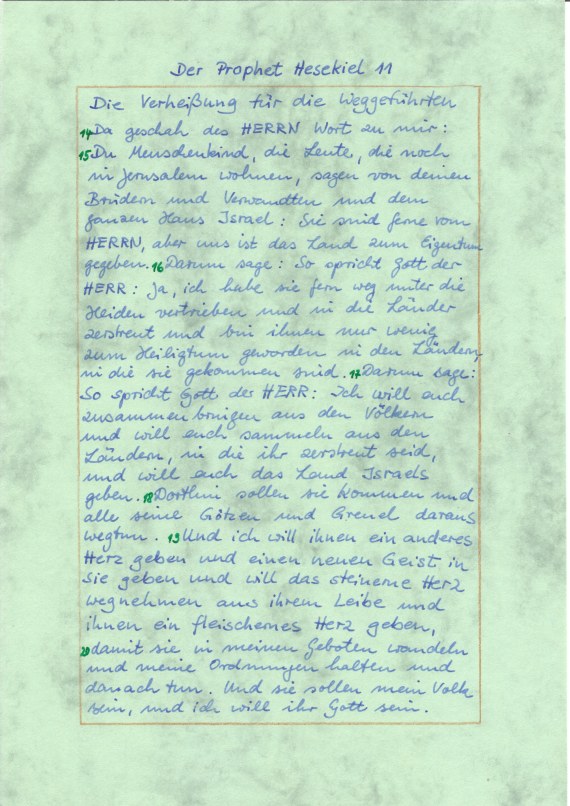 Der Prophet Hesekiel 11
Die Verheißung für die Weggeführten
14 Da geschah des HERRN Wort zu mir:
15 Du Menschenkind, die Leute, die noch
in Jerusalem wohnen, sagen von deinen
Brüdern und Verwandten und dem
ganzen Haus Israel: Sie sind ferne vom
HERRN, aber uns ist das Land zum Eigentum
gegeben. 16 Darum sage: So spricht Gott der
HERR: Ja, ich habe sie fern weg unter die
Heiden vertrieben und in die Länder
zerstreut und bin ihnen nur wenig
zum Heiligtum geworden in den Ländern,
in die sie gekommen sind. 17 Darum sage:
So spricht Gott der HERR: Ich will euch
zusammenbringen aus den Völkern
und will euch sammeln aus den
Ländern, in die ihr zerstreut seid,
und will euch das Land Israels
geben. 18 Dorthin sollen sie kommen und
alle seine Götzen und Greuel daraus
wegtun. 19 Und ich will ihnen ein anderes
Herz geben und einen neuen Geist in
sie geben und will das steinerne Herz
wegnehmen aus ihrem Leibe und
ihnen ein fleischernes Herz geben,
20 damit sie in meinen Geboten wandeln
und meine Ordnungen halten und
danach tun. Und sie sollen mein Volk
sein, und ich will ihr Gott sein.